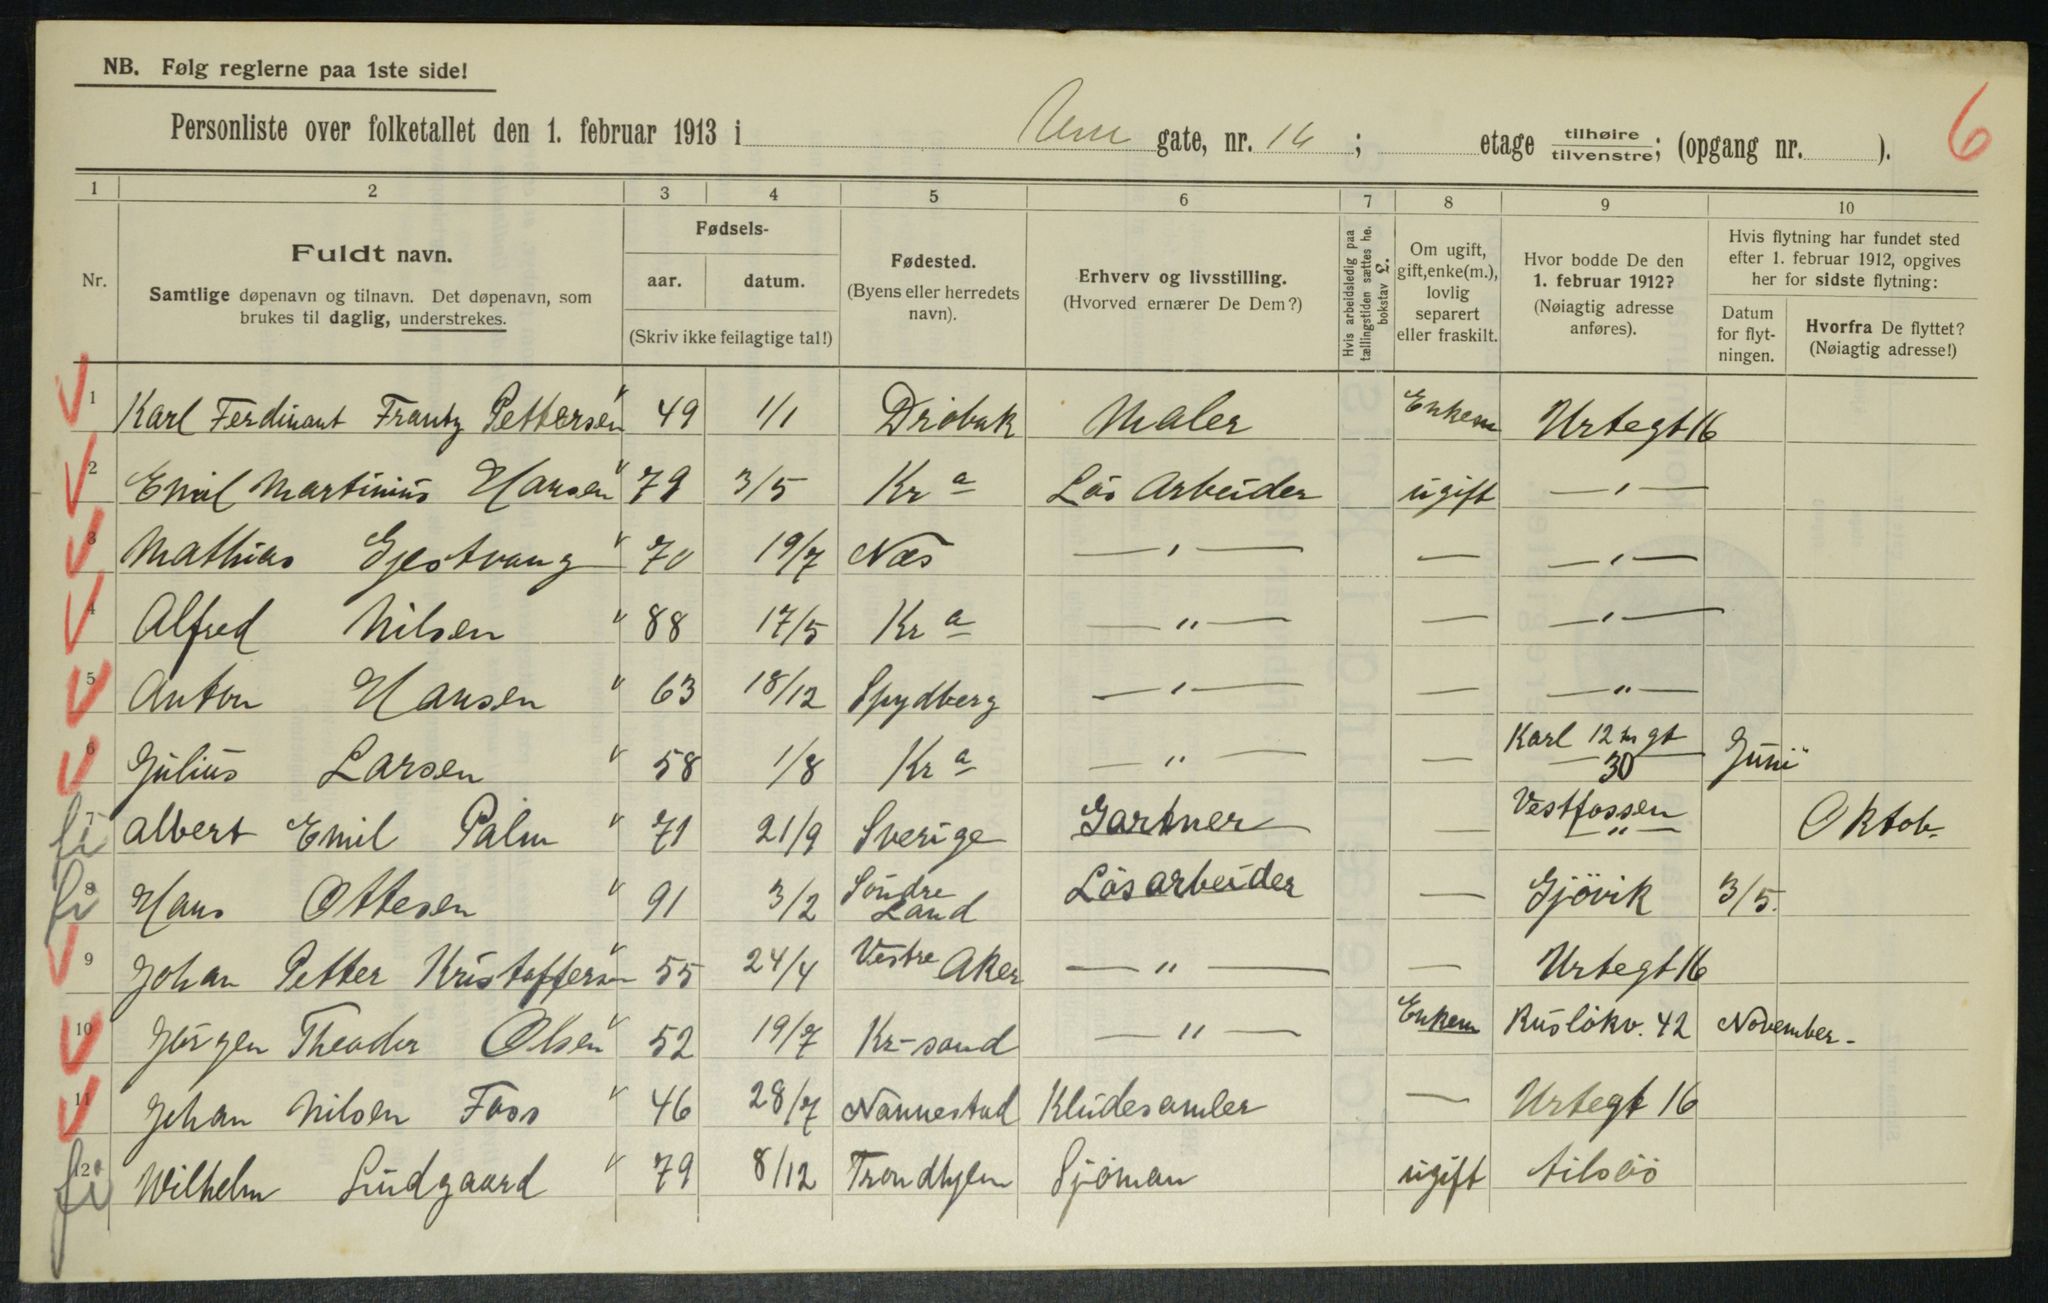 NB. Følg reglerne paa 1ste side!
6
Personliste over folketallet den 1. februar 1913 i Urte gate, nr. 16; etage tilhøire/tilvenstre; (opgang nr. ).
1 2 3 4 5 6 7 8 9 10
Nr.
Fuldt navn.
Samtlige døpenavn og tilnavn. Det døpenavn, som
brukes til daglig, understrekes.
Fødsels-
aar. datum.
(Skriv ikke feilagtige tal!)
Fødested.
(Byens eller herredets
navn).
Erhverv og livsstilling.
(Hvorved ernærer De Dem?)
Hvis arbeidsledig paa
tællingstiden sættes her
bokstav L.
Om ugift,
gift, enke(m.),
lovlig
separert
eller fraskilt.
Hvor bodde De den
1. februar 1912?
(Nøiagtig adresse
anføres).
Hvis flytning har fundet sted
efter 1. februar 1912, opgives
her for sidste flytning:
Datum
for flyt-
ningen.
Hvorfra De flyttet?
(Nøiagtig adresse!)
1 Karl Ferdinant Frantz Pettersen 49 1/1 Dröbak Maler Enkem Urtegt 16
2 Emil Martinius Hansen 79 3/5 Kr a Lös Arbeider ugift — " —
3 Mathias Gjestvang 70 19/7 Næs — " — — — " —
4 Alfred Nilsen 88 17/5 Kr a — " — — — " —
5 Anton Hansen 63 18/12 Spydberg — " — — — " —
6 Julius Larsen 58 1/8 Kr a — " — — Karl 12 tes gt 30 Juni
7 Albert Emil Palm 71 21/9 Sverige Gartner — Vestfossen — " — Oktob-
8 Hans Ottesen 91 3/2 Söndre Land Lösarbeider — Gjövik 3/5.
9 Johan Petter Kristoffersen 55 24/4 Vestre Aker — " — — Urtegt 16
10 Jörgen Theodor Olsen 52 19/7 Kr-sand — " — EnkemRuslökv. 42 November-
11 Johan Nilsen Foss 46 28/7 Nannestad Kludesamler — Urtegt 16
12 Wilhelm Lindgaard 79 8/12 Trondhjem Sjöman ugift tilsös